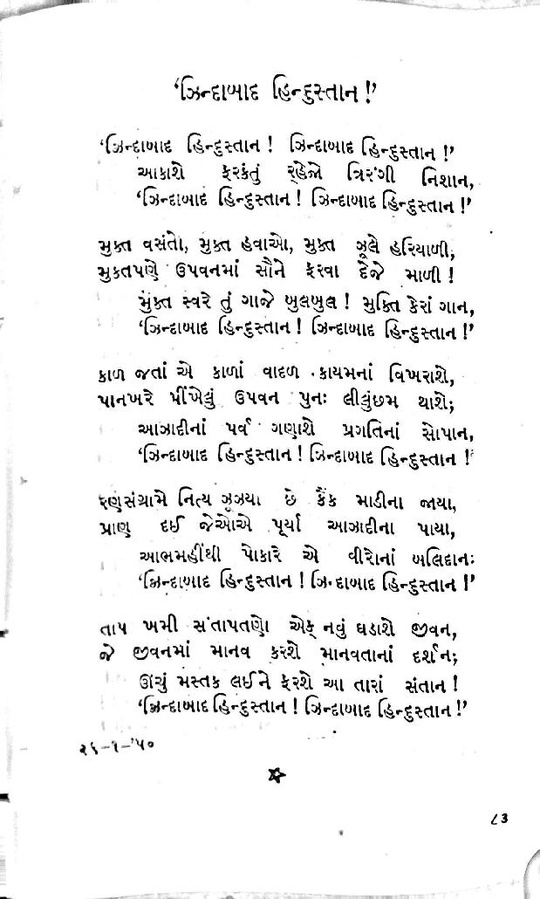 ‘ઝિન્દાબાદ હિન્દુસ્તાન!’
‘ઝિન્દાબાદ હિન્દુસ્તાન! ઝિન્દાબાદ હિન્દુસ્તાન!’
આકાશે ફરકંતું રહેજો ત્રિરંગી નિશાન,
‘ઝિન્દાબાદ હિન્દુસ્તાન! ઝિન્દાબાદ હિન્દુસ્તાન!’
મુક્ત વસંતો, મુક્ત હવાઓ, મુક્ત ઝૂલે હરિયાળી;
મુક્તપણે ઉપવનમાં સૌને ફરવા દેજે માળી!
મુક્ત સ્વરે તું ગાજે બુલબુલ! મુક્તિ કેરાં ગાન,
‘ઝિન્દાબાદ હિન્દુસ્તાન! ઝિન્દાબાદ હિન્દુસ્તાન!’
કાળ જતાં એ કાળાં વાદળ કાયમનાં વિખરાશે,
પાનખરે પીંખેલું ઉપવન પુનઃ લીલુંછમ થાશે;
આઝાદીનાં પર્વ ગણાશે પ્રગતિનાં સોપાન,
‘ઝિન્દાબાદ હિન્દુસ્તાન! ઝિન્દાબાદ હિન્દુસ્તાન!’
રણસંગ્રામે નિત્ય ઝૂઝયા છે કૈંક માડીના જાયા,
પ્રાણ દઈ જેઓએ પૂર્યા આઝાદીના પાયા,
આભમહીંથી પોકારે એ વીરોનાં બલિદાનઃ
‘ઝિન્દાબાદ હિન્દુસ્તાન! ઝિન્દાબાદ હિન્દુસ્તાન!’
તાપ ખમી સંતાપતણો એક નવું ઘડાશે જીવન,
જે જીવનમાં માનવ કરશે માનવતાનાં દર્શન;
ઊંચું મસ્તક લઈને ફરશે આ તારાં સંતાન!
‘ઝિન્દાબાદ હિન્દુસ્તાન! ઝિન્દાબાદ હિન્દુસ્તાન!’
૨૬-૧-’૫૦
૮૩